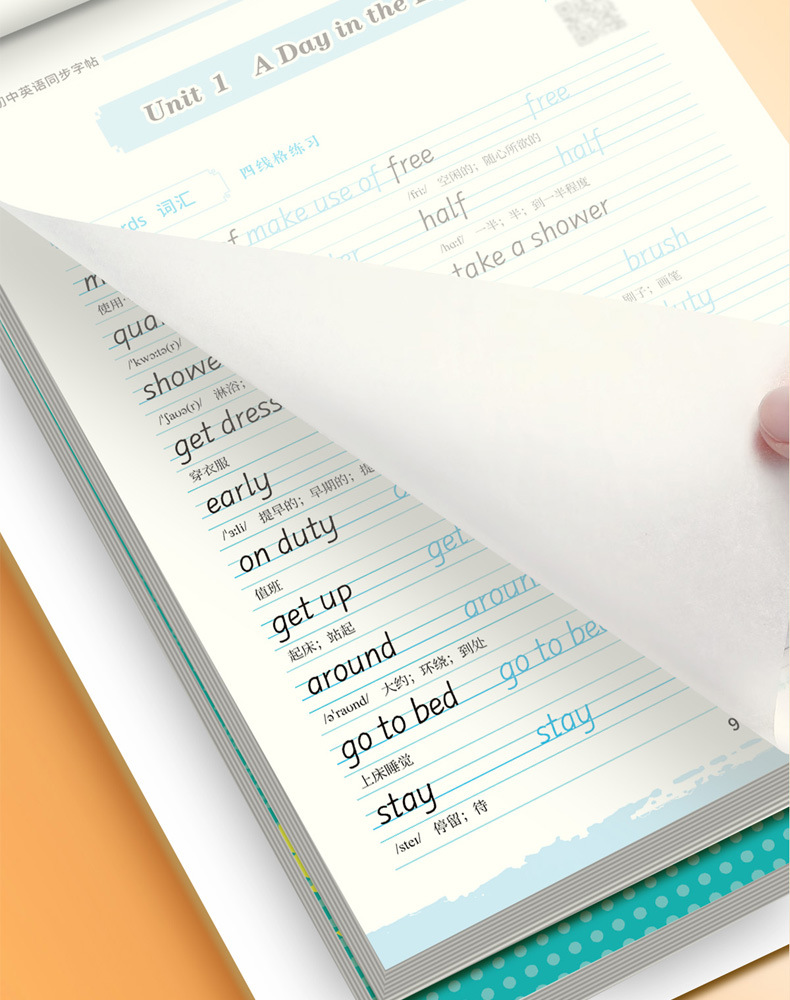 初中英语同步字帖
Unit 1 A Day in the
词汇
四线格练习
make use of free free
/friː/ 空闲的；随心所欲的
half half
/hɑːf/ 一半；半；到一半程度
take a shower
使用
brush
刷子；画笔
duty
/ˈkwɔːtə(r)/
/ˈʃaʊə(r)/ 淋浴；
get dress
穿衣服
early
/ˈɜːli/ 提早的；早期的；提
on duty
值班
get up get
起床；站起
around around
/əˈraʊnd/ 大约；环绕；到处
go to bed go to bed
上床睡觉
stay stay
/steɪ/ 停留；待
9